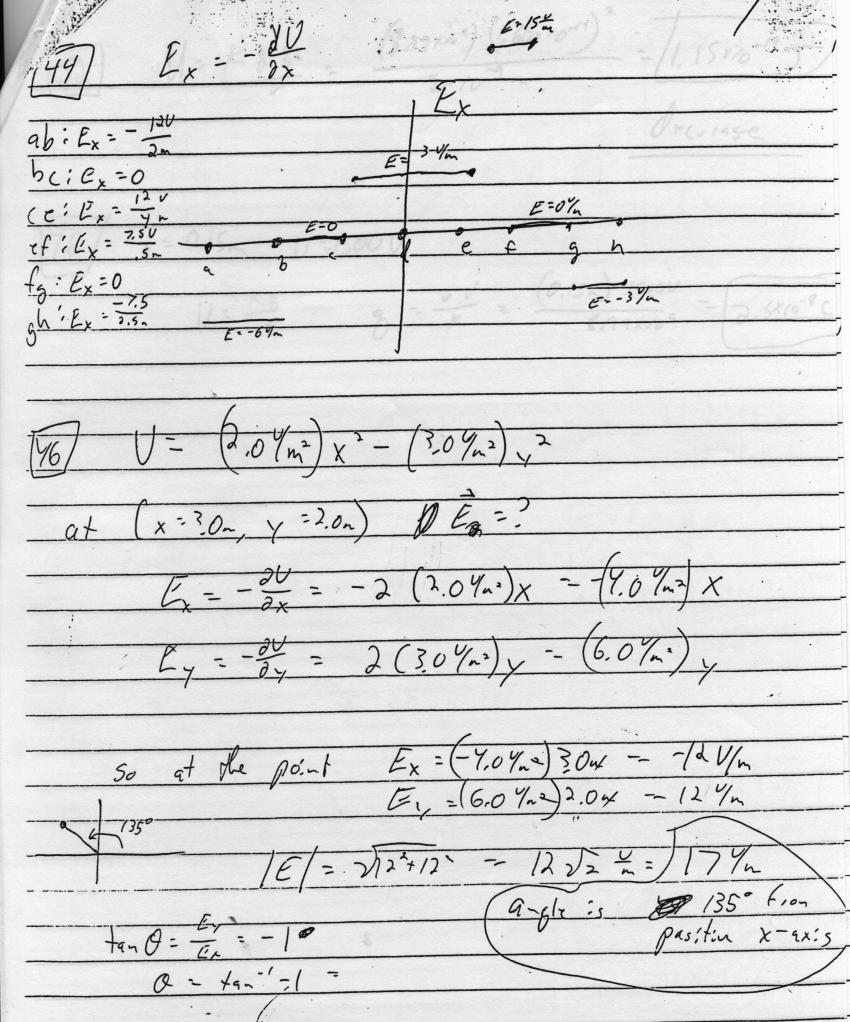 44 E_x = -∂U/∂x
E=15 V/m
E_x
ab: E_x = - 12V/2m
bc: E_x = 0
ce: E_x = 12 V/4 m
ef: E_x = 7.5V/.5m
fg: E_x = 0
gh: E_x = -7.5/2.5m
E= 3 V/m
E=0
E=0 V/m
a b c d e f g h
E=-6 V/m
E=-3 V/m
46 U = (2.0 V/m²) x² - (3.0 V/m²) y²
at (x=3.0m, y=2.0m) E⃗ = ?
E_x = -∂U/∂x = -2 (2.0 V/m²) x = -(4.0 V/m²) x
E_y = -∂U/∂y = 2 (3.0 V/m²) y = (6.0 V/m²) y
So at the point E_x = (-4.0 V/m²) 3.0m = -12 V/m
E_y = (6.0 V/m²) 2.0m = 12 V/m
135°
|E| = √12²+12² = 12√2 V/m = 17 V/m
angle is 135° from
positive x-axis
tan θ = E_y/E_x = -1
θ = tan⁻¹ -1 =